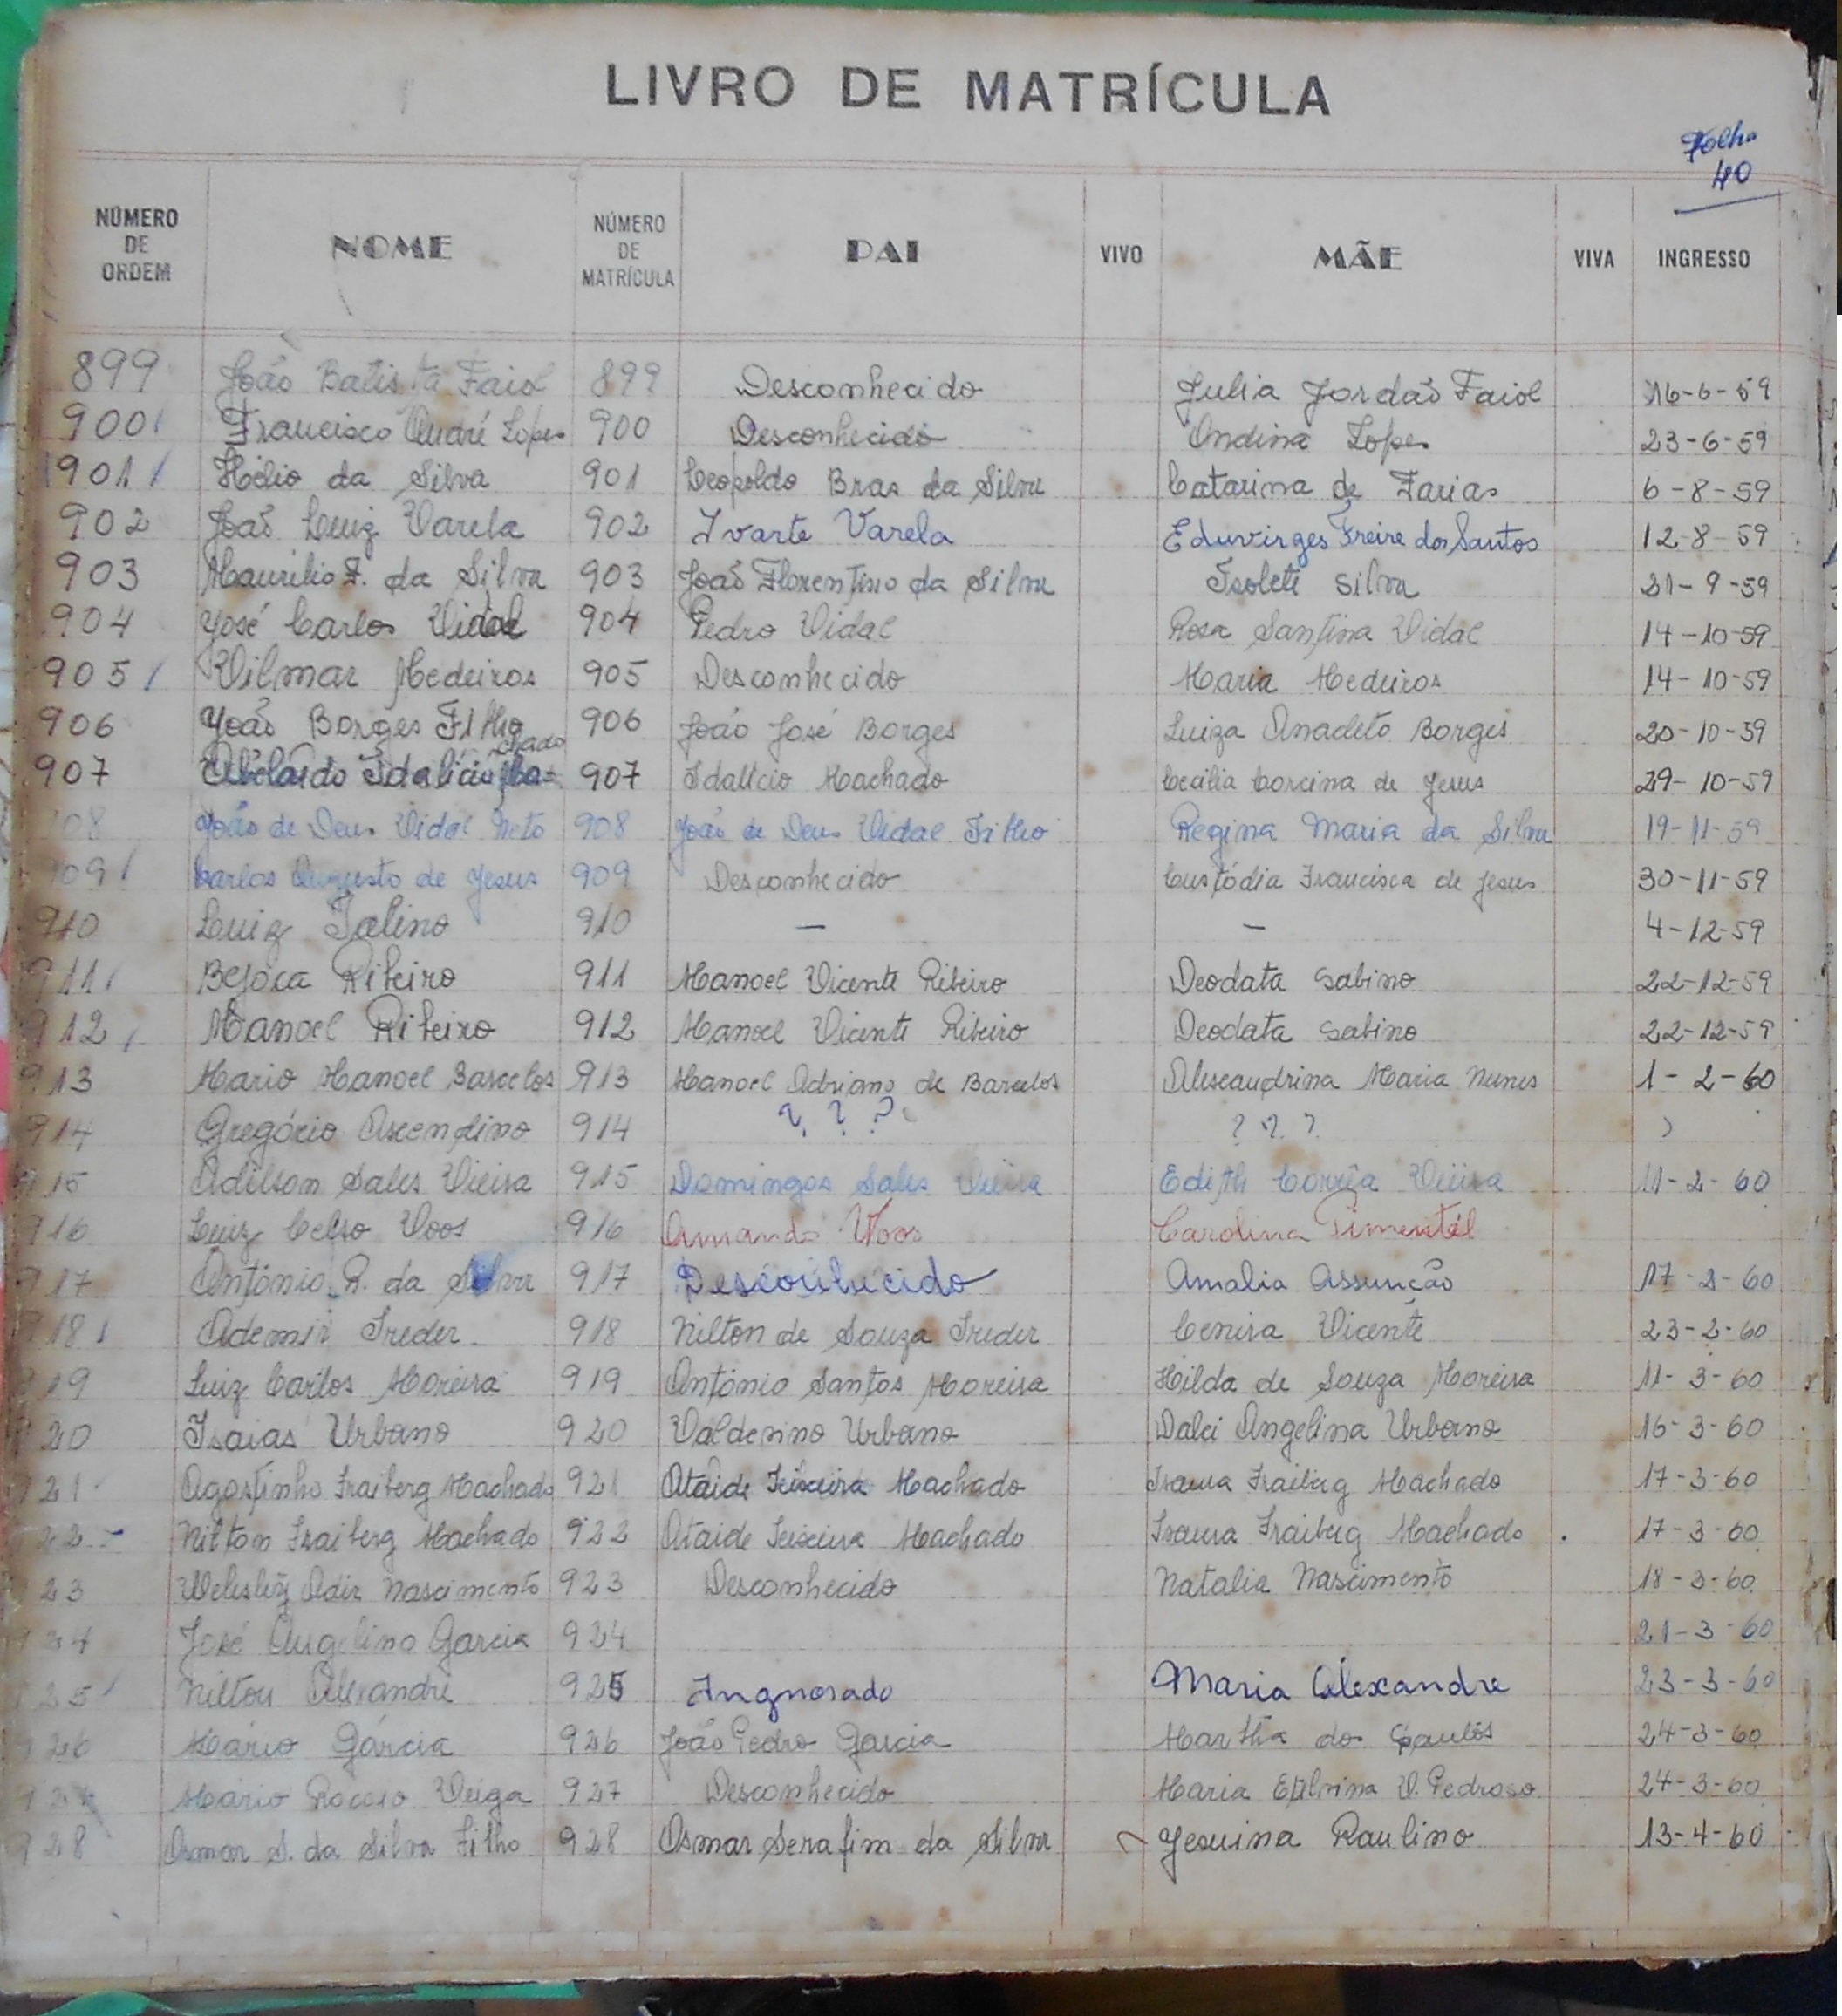 LIVRO DE MATRÍCULA
Folha
40
NÚMERO DE ORDEM NOME NÚMERO DE MATRÍCULA PAI VIVO MÃE VIVA INGRESSO
899 João Batista Faiol 899 Desconhecido Julia Jordaõ Faiol 16-6-59
900 Francisco André Lopes 900 Desconhecido Ondina Lopes 23-6-59
901 Hélio da Silva 901 Leopoldo Bras da Silva Catarina de Farias 6-8-59
902 Joaõ Luiz Varela 902 Ivarte Varela Eduvirges Freire dos Santos 12-8-59
903 Maurilio F. da Silva 903 Joaõ Florentino da Silva Isolete Silva -9-59
904 José Carlos Vidal 904 Pedro Vidal Rosa Santina Vidal 14-10-59
905 Vilmar Medeiros 905 Desconhecido Maria Medeiros 14-10-59
906 Joaõ Borges Filho 906 João José Borges Luiza Anacleto Borges 20-10-59
907 Abelardo Idalicio Machado 907 Idalício Machado Cecilia Corcina de Jesus 29-10-59
908 João de Deus Vidal Neto 908 João de Deus Vidal Filho Regina Maria da Silva 19-11-59
909 Carlos Augusto de Jesus 909 Desconhecido Custódia Francisca de Jesus 30-11-59
910 Luiz Galino 910 — — 4-12-59
911 Bejoca Ribeiro 911 Manoel Vicente Ribeiro Deodata Sabino 22-12-59
912 Manoel Ribeiro 912 Manoel Vicente Ribeiro Deodata Sabino 22-12-59
913 Mario Manoel Barcelos 913 Manoel Adriano de Barcelos Alexandrina Maria Nunes 1-2-60
914 Gregório Ascendino 914 ? ? ? ? ? ? ?
915 Adilson Sales Vieira 915 Domingos Sales Vieira Edith Corrêa Vieira 11-2-60
916 Luiz Celso Voos 916 Amando Voos Carolina Pimentél
917 Antônio R. da Silva 917 Desconhecido Amalia Assunção 17-2-60
918 Ademir Freder 918 Nilton de Souza Freder Cenira Vicente 23-2-60
919 Luiz Carlos Moreira 919 Antônio Santos Moreira Hilda de Souza Moreira 11-3-60
920 Isaias Urbano 920 Valdemino Urbano Dalci Angelina Urbano 16-3-60
921 Agostinho Fraiberg Machado 921 Ataide Teixeira Machado Isaura Fraiberg Machado 17-3-60
922 Nilton Fraiberg Machado 922 Ataide Teixeira Machado Isaura Fraiberg Machado 17-3-60
923 Adir Nascimento 923 Desconhecido Natalia Nascimento 18-3-60
924 José Angelino Garcia 924 21-3-60
925 Nilton Alexandre 925 Ingnorado Maria Alexandre 23-3-60
926 Mário Garcia 926 João Pedro Garcia Martha dos 24-3-60
927 Mario Veiga 927 Desconhecido Maria V. Pedroso 24-3-60
928 Osmar S. da Silva Filho 928 Osmar Serafim da Silva Jesuina Raulino 13-4-60